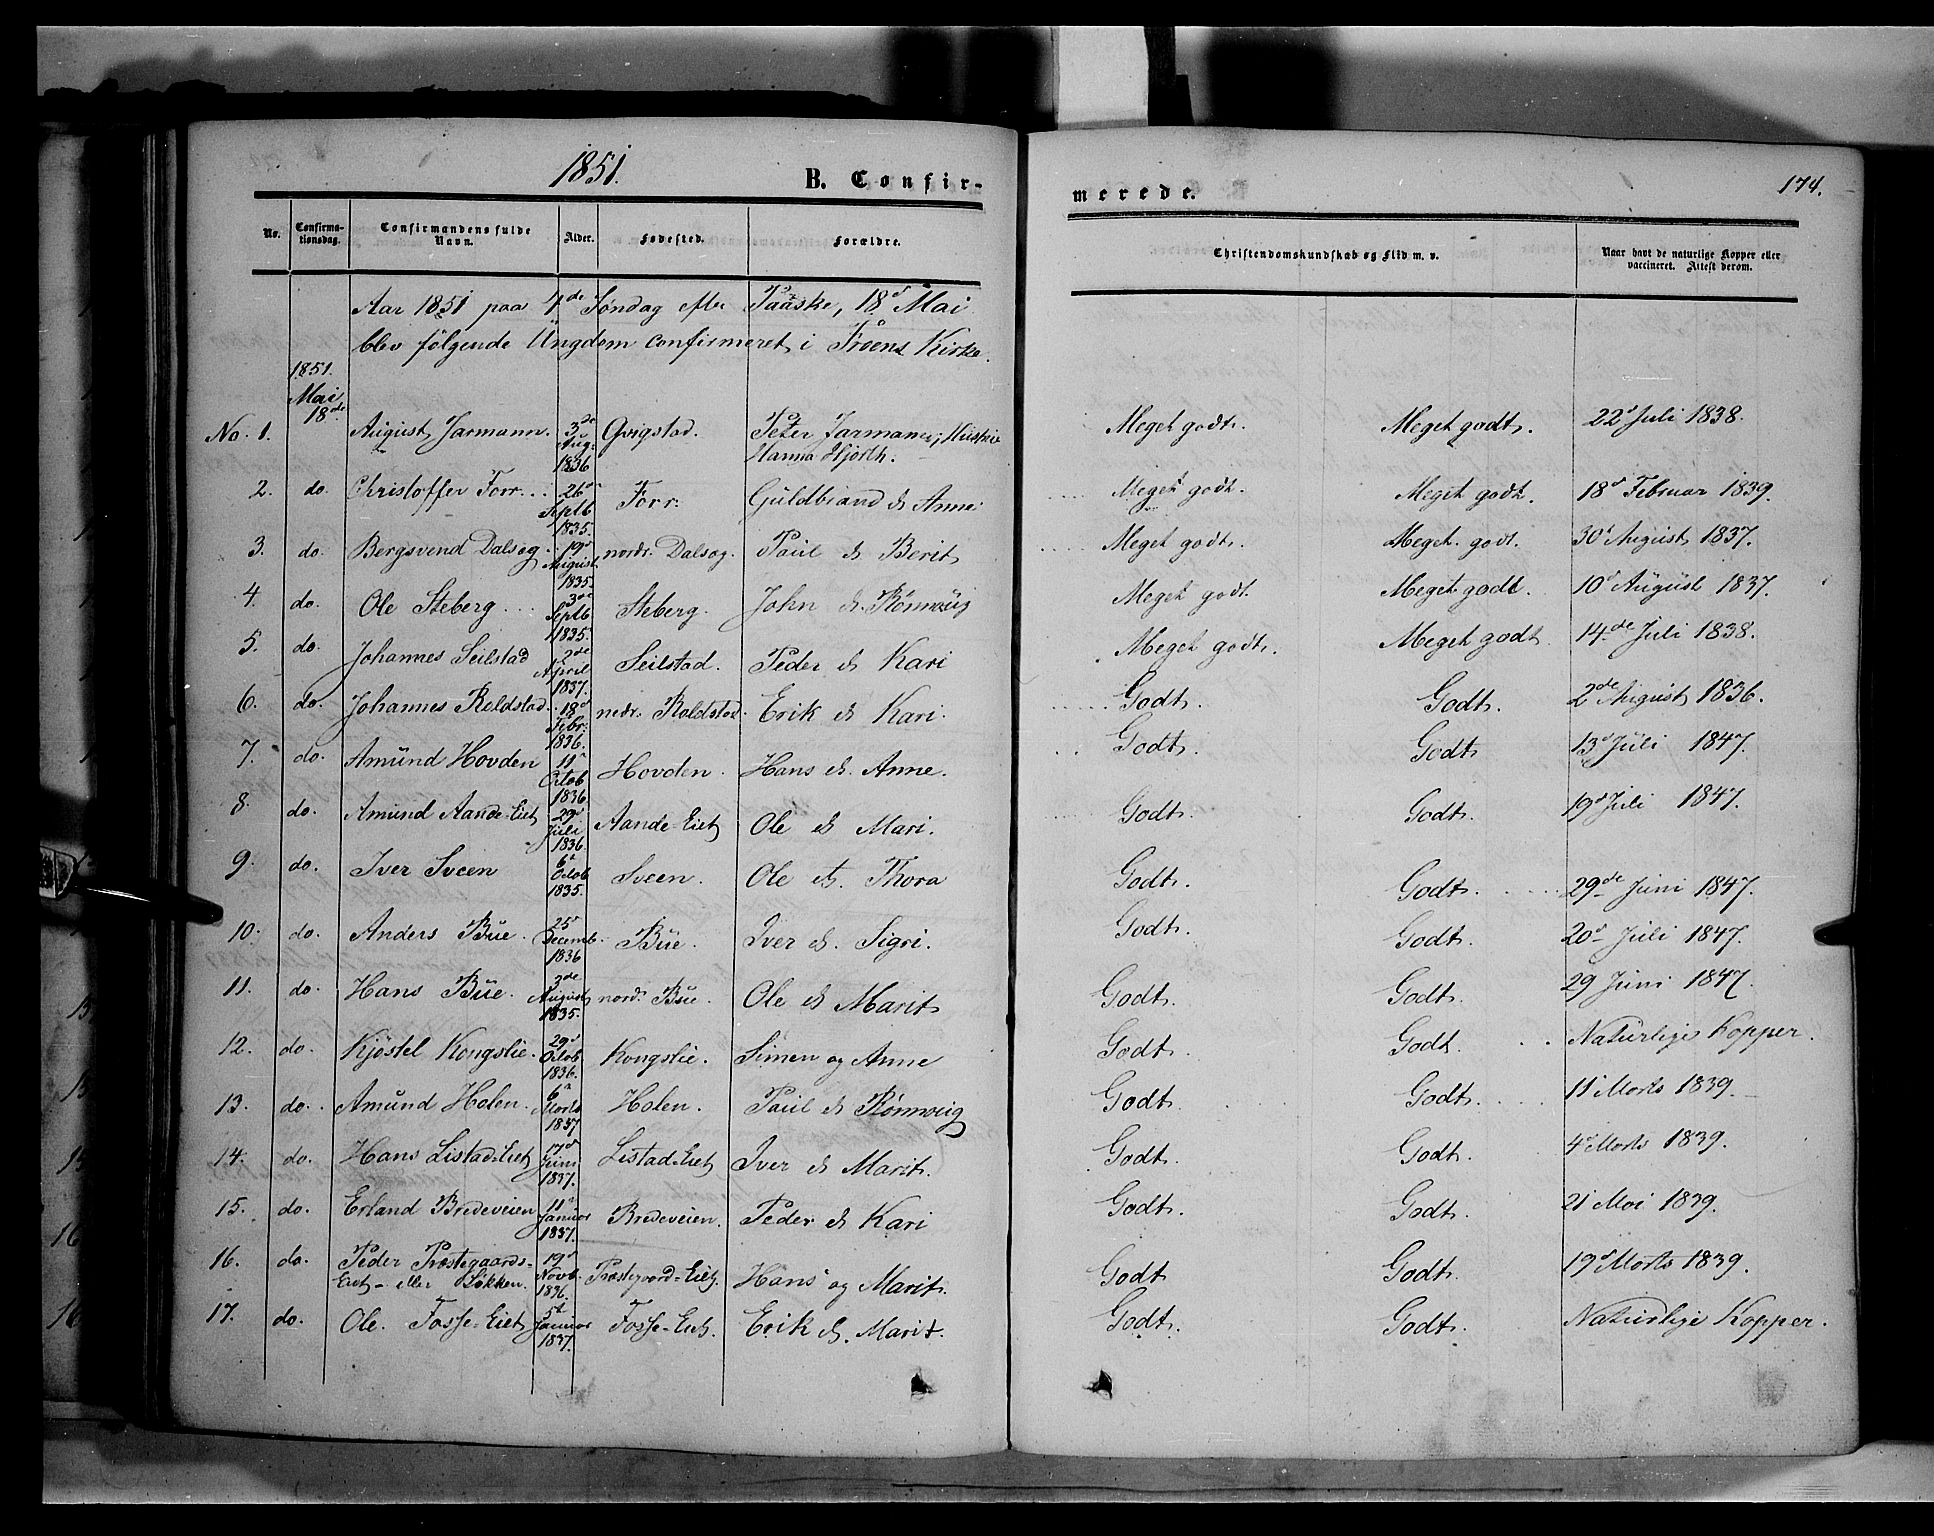 1851.
B. Confir-
merede.
174.
No.
Confirma-
tionsdag.
Confirmandens fulde
Navn.
Alder.
Fødested.
Forældre.
Christendomskundskab og Flid m. v.
Naar havt de naturlige Kopper eller
vaccineret. Attest derom.
Aar 1851 paa 4de Søndag efter Paaske, 18d Mai
blev følgende Ungdom confirmeret i Froens Kirke.
1851.
Mai
18de
No. 1. August Jarmann. 3de Aug: 1836 Grigstad. Peter Jarmann,
Hanna Hjorth. Meget godt. Meget godt. 22d Juli 1838.
2. do. Christoffer Forr... 26d Septb 1835. Forr. Guldbrand & Anne Meget godt. Meget godt. 18d Februar 1839.
3. do. Bergsvend Dalseg. 19d August 1835. nordr. Dalseg. Paul & Berit Meget godt. Meget godt. 30d August 1837.
4. do. Ole Steberg... 3de Septb 1835. Steberg. John & Rønnoüg Meget godt. Meget godt. 10d August 1837.
5. do. Johannes Seilstad 2de April 1837. Seilstad. Peder & Kari Meget godt. Meget godt. 14de Juli 1838.
6. do. Johannes Roldstad. 18d Febr: 1836. nedr. Roldstad Erik & Kari. Godt. Godt. 2de August 1836.
7. do. Amund Hovden 11d Octob 1836. Hovden. Hans & Anne. Godt. Godt 13d Juli 1847.
8. do. Amund Aande-Eiet 29d Juli 1836. Aande-Eiet Ole & Mari. Godt. Godt. 19d Juli 1847.
9. do. Iver Sveen 6d Octob 1835. Sveen. Ole & Thora Godt. Godt. 29de Juni 1847.
10. do. Anders Büe. 25d Decemb. 1836 Büe. Iver & Sigri. Godt. Godt. 20d Juli 1847.
11. do. Hans Büe. August 1835. nord. Büe. Ole & Marit Godt. Godt. 29 Juni 1847.
12. do. Kjöstel Kongslie. 29d Octob 1836. Kongslie. Simen og Anne Godt. Godt. Naturlige Kopper.
13. do. Amund Holen. 6d Marts 1837 Holen. Paul & Rønnoüg Godt. Godt. 11d Marts 1839.
14. do. Hans Listad-Eiet 17d Juni 1837. Listad-Eiet Iver & Marit. Godt. Godt. 4d Marts 1839.
15. do. Erland Bredeveien 11d Januar 1837. Bredeveien. Peder & Kari Godt. Godt. 21 Mai 1839.
16. do. Peder Præstegaards-
Eiet- eller Løkken. 19d Novb. 1836. Præstegaard-Eiet. Hans og Marit. Godt Godt. 19d Marts 1839.
17. do. Ole Fosse-Eiet 5d Januar 1837. Fosse-Eiet. Erik & Marit. Godt. Godt. Naturlige Kopper.